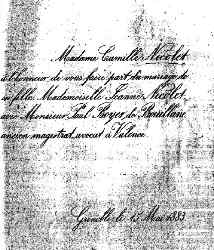 Madame Camille Nicolet
a l'honneur de vous faire part du mariage de
sa fille Mademoiselle Jeanne Nicolet,
avec Monsieur Paul Boyer de Bouillane
ancien magistrat, avocat à Valence.
Grenoble le 15 Mai 1883